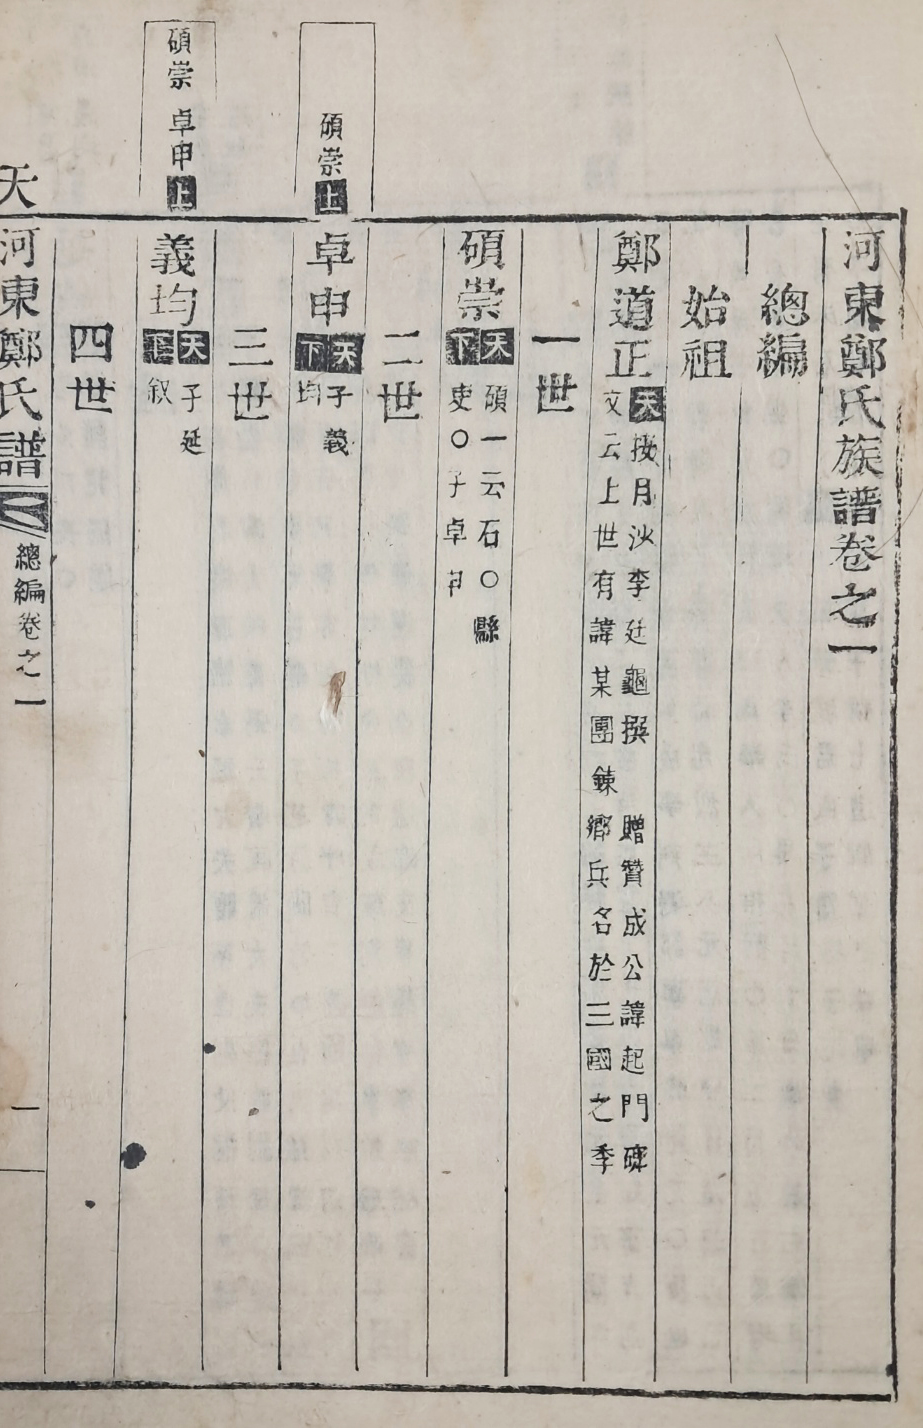 河東鄭氏族譜卷之一
總編
始祖
鄭道正
天
按月沙李廷龜撰贈贊成公諱起門碑
文云上世有諱某團鍊鄉兵名於三國之季
一世
碩崇
天下
碩一云石〇縣
吏〇子卓申
二世
碩崇上
卓申
天下
子義
均
三世
碩崇 卓申上
義均
天下
子延
叙
四世
天
河東鄭氏譜
總編卷之一
一